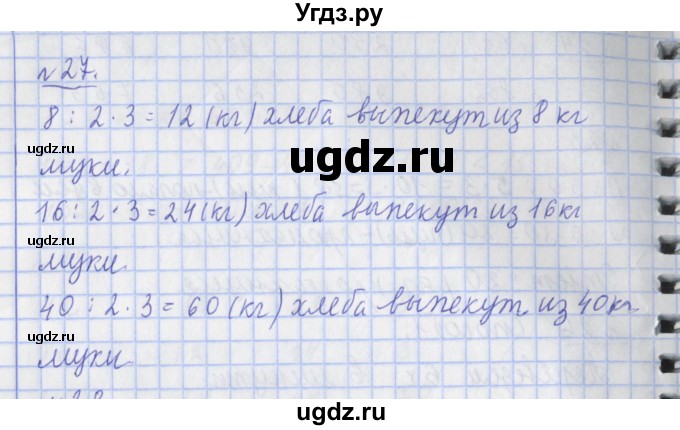 Угдз.ру
№27.
8 : 2 · 3 = 12 (кг) хлеба выпекут из 8 кг
муки.
ugdz.ru
ugdz.ru
16 : 2 · 3 = 24 (кг) хлеба выпекут из 16 кг
муки.
ugdz.ru
40 : 2 · 3 = 60 (кг) хлеба выпекут из 40 кг
муки.
ugdz.ru
ugdz.ru